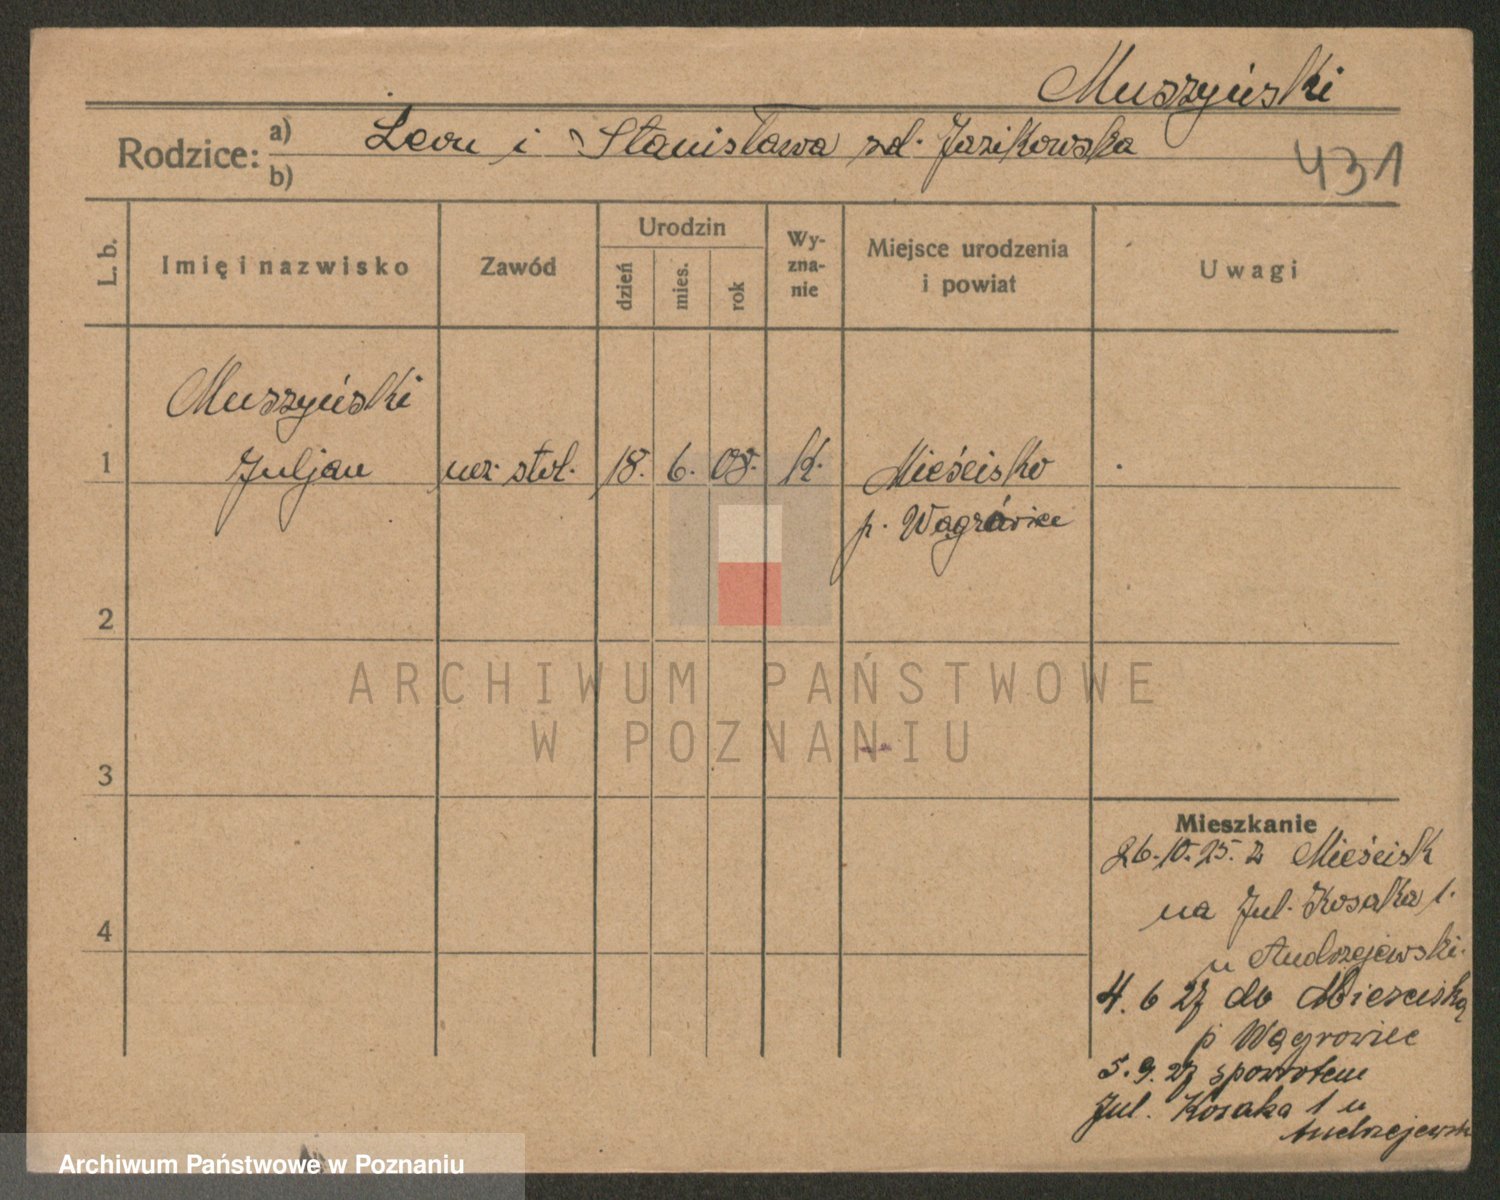 Muszyński
Rodzice: a) Leon i Stanisława zd. Jazikowska
b)
431
L. b.
Imię i nazwisko
Zawód
Urodzin
dzień
mies.
rok
Wy-
zna-
nie
Miejsce urodzenia
i powiat
Uwagi
Muszyński
1 Juljan ucz. stol. 18. 6. 08. k. Mieścisko
p. Wągrówiec
2
3
4
ARCHIWUM PAŃSTWOWE
W POZNANIU
Mieszkanie
26.10.25. z Mieścisk
na Jul. Kosaka 1.
u Andrzejewski.
4. 6 27 do Mieściska
p Wągrowiec
5.9.27 spowrotem
Jul. Kosaka 1 u
Andrzejewsk
Archiwum Państwowe w Poznaniu